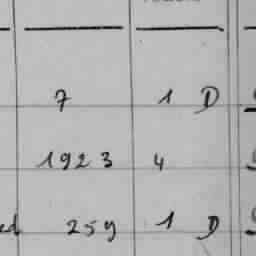 7 1 D
1923 4
ed 259 1 D